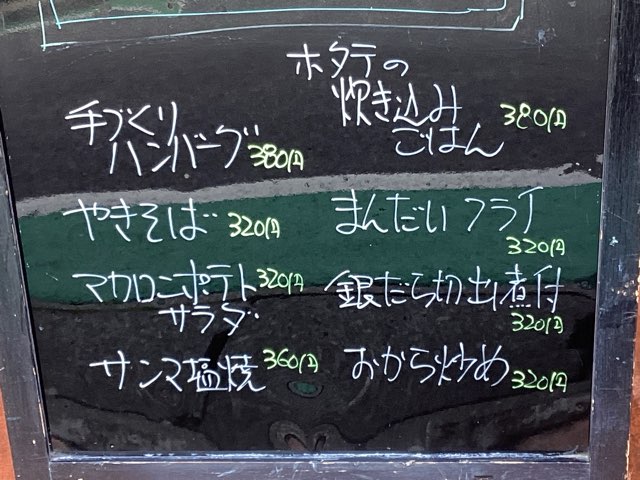 ホタテの
炊き込み
ごはん 380円
手づくり
ハンバーグ 380円
やきそば 320円
まんだいフライ
320円
マカロニポテト 320円
サラダ
銀だら切出煮付
320円
サンマ塩焼 360円
おから炒め 320円